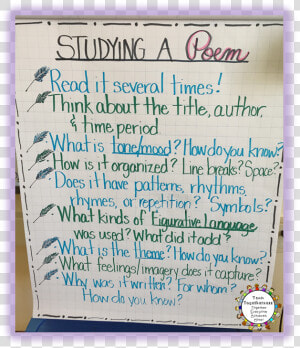 STUDYING A Poem
Read it several times!
Think about the title, author,
& time period
What is tone/mood? How do you know?
How is it organized? Line breaks? Space?
Does it have patterns, rhythms,
rhymes, or repetition? Symbols?
What kinds of Figurative Language
was used? What did it add?
What is the theme? How do you know?
What feelings/imagery does it capture?
Why was it written? For whom?
How do you know?